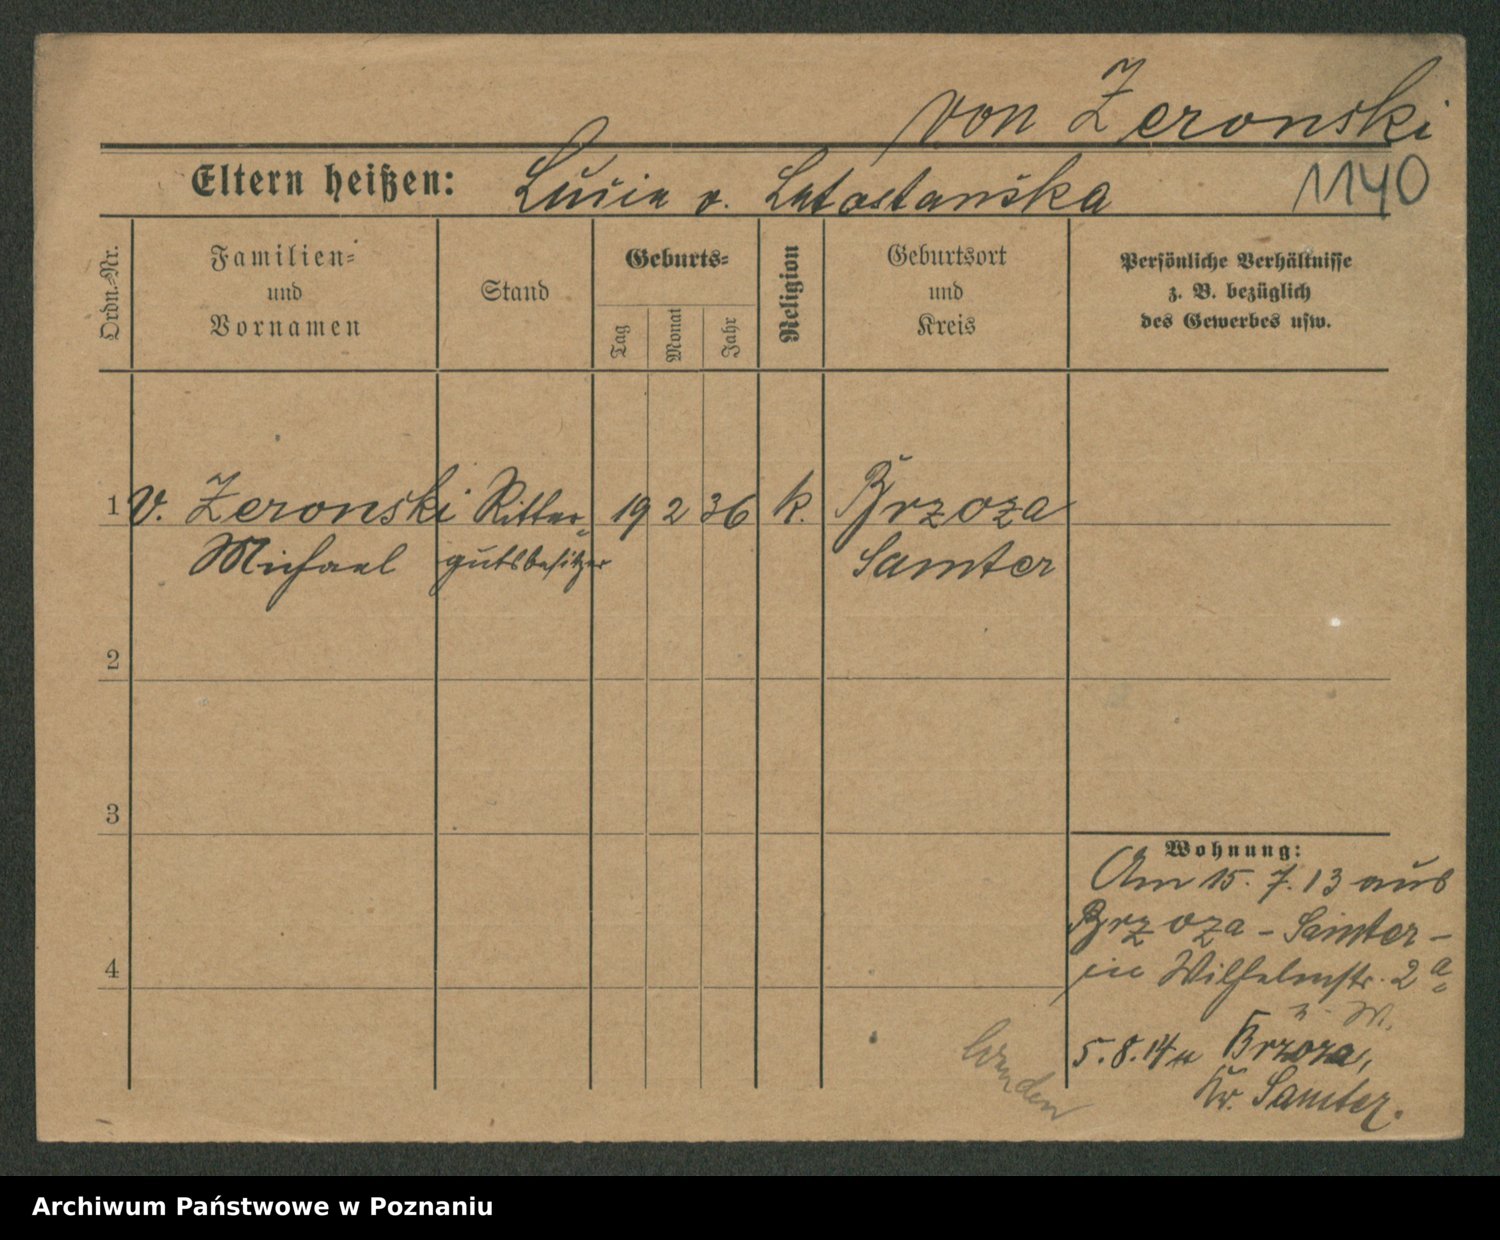 von Zeronski
Eltern heißen: Lucia v. Latostanska
1140
Ordn.-Nr.
Familien-
und
Vornamen
Stand
Geburts-
Tag
Monat
Jahr
Religion
Geburtsort
und
Kreis
Persönliche Verhältnisse
z. B. bezüglich
des Gewerbes usw.
1 v. Zeronski Ritter- 19 2 36 k. Brzoza
Michael gutsbesitzer Samter
2
3
4
Wohnung:
Am 15. 7. 13 aus
Brzoza - Samter -
in Wilhelmstr. 2a
5.8.14 n Brzoza,
Kr. Samter.